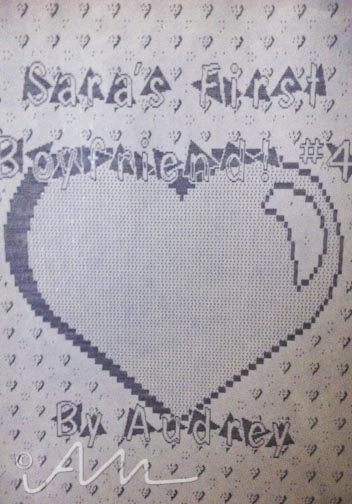 Sara's First
Boyfriend! #4
By Audrey
©